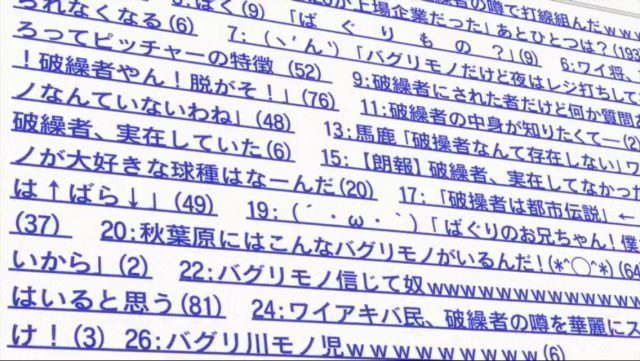 られなくなる(6) 5:ばく(9) 「ZEROが上場企業だった」あとひとつは?(193
「ばぐりもの?」(9) 6:ワイ将、
ろってピッチャーの特徴(52) 7:(ヽ´ん`)「バグリモノだけど夜はレジ打ちして
!破繰者やん!脱がそ!」(76) 9:破繰者にされた者だけど何か質問
ノなんていないわね」(48) 11:破繰者の中身が知りたくて―(2)
破繰者、実在していた(6) 13:馬鹿「破操者なんて存在しない」ワ
ノが大好きな球種はなーんだ(20) 15:【朗報】破繰者、実在してなかっ
は↑ばら↓」(49) 17:「破操者は都市伝説」←
(37) 19:(´・ω・`)「ばぐりのお兄ちゃん!僕
20:秋葉原にはこんなバグリモノがいるんだ!(*^◯^*)(64
いから」(2) 22:バグリモノ信じて奴wwwwwwwwwwwwww
はいると思う(81) 24:ワイアキバ民、破繰者の噂を華麗にス
け!(3) 26:バグリ川モノ児wwwwwwwww(6)